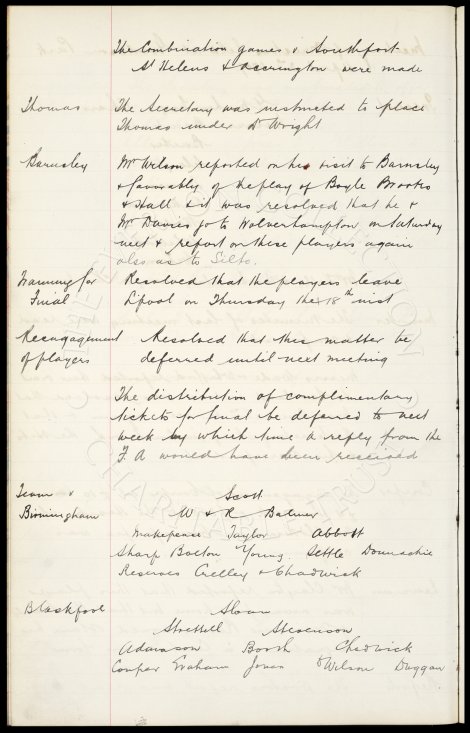 The Combination games v Southport
St Helens & Accrington were made
Thomas The Secretary was instructed to place
Thomas under Dr Wright
Barnsley Mr Wilson reported on his visit to Barnsley
& favorably of the play of Boyle Brooks
& Hall & it was resolved that he &
Mr Davies go to Wolverhampton on Saturday
next & report on these players again
also as to Silto.
Training for Final Resolved that the players leave
Lpool on Thursday the 18th inst
Reengagement of players Resolved that this matter be
deferred until next meeting
The distribution of complimentary
tickets for final be deferred to next
week by which time a reply from the
F. A would have been received
Team v Birmingham Scott
W & R Balmer
Makepeace Taylor Abbott
Sharp Bolton Young Settle Donnachie
Reserves Crelley & Chadwick
Blackpool Sloan
Strettell Stevenson
Adamson Booth Chadwick
Couper Graham Jones Wilson Duggan